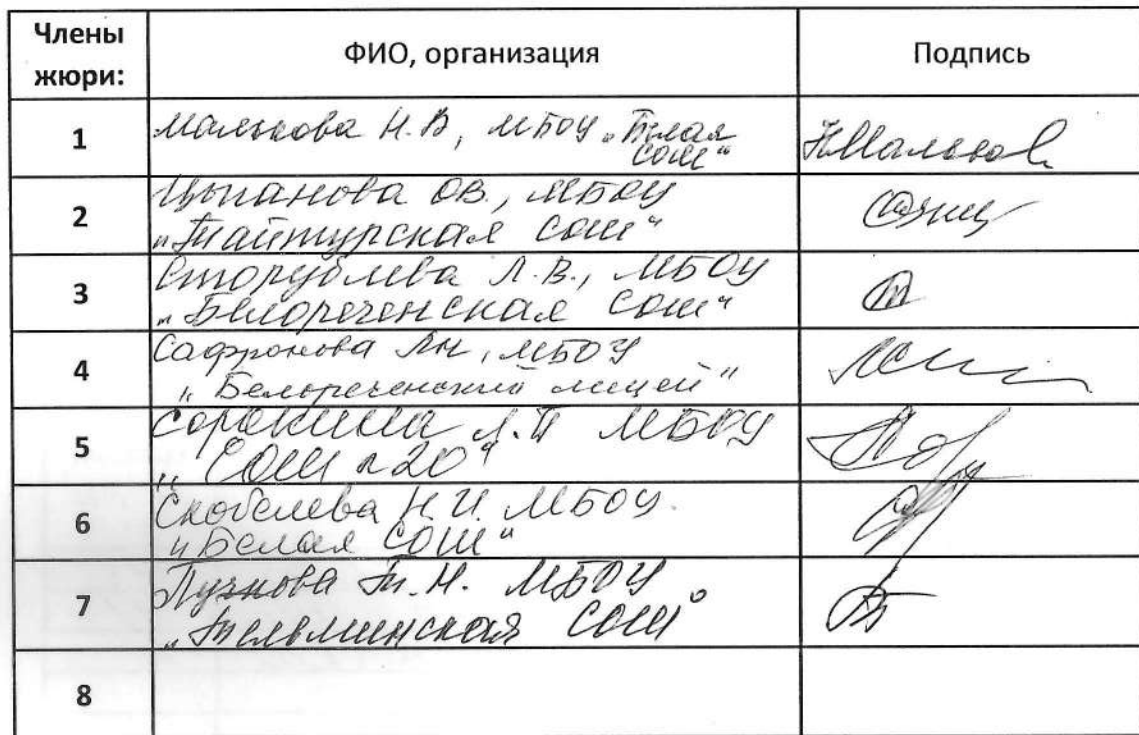 Члены жюри: ФИО, организация Подпись
1 Малькова Н.В, МБОУ „Белая
СОШ“
2 Цыпанова ОВ., МБОУ
„Тайтурская СОШ“
3 Сторублева Л.В., МБОУ
„Белореченская СОШ“
4 Сафронова ЛН, МБОУ
„Белореченский лицей"
5 Сорокина Л.П МБОУ
„СОШ №20"
6 Скобелева Н.И. МБОУ.
„Белая СОШ"
7 Пучкова Т.Н. МБОУ
„Тельминская СОШ"
8